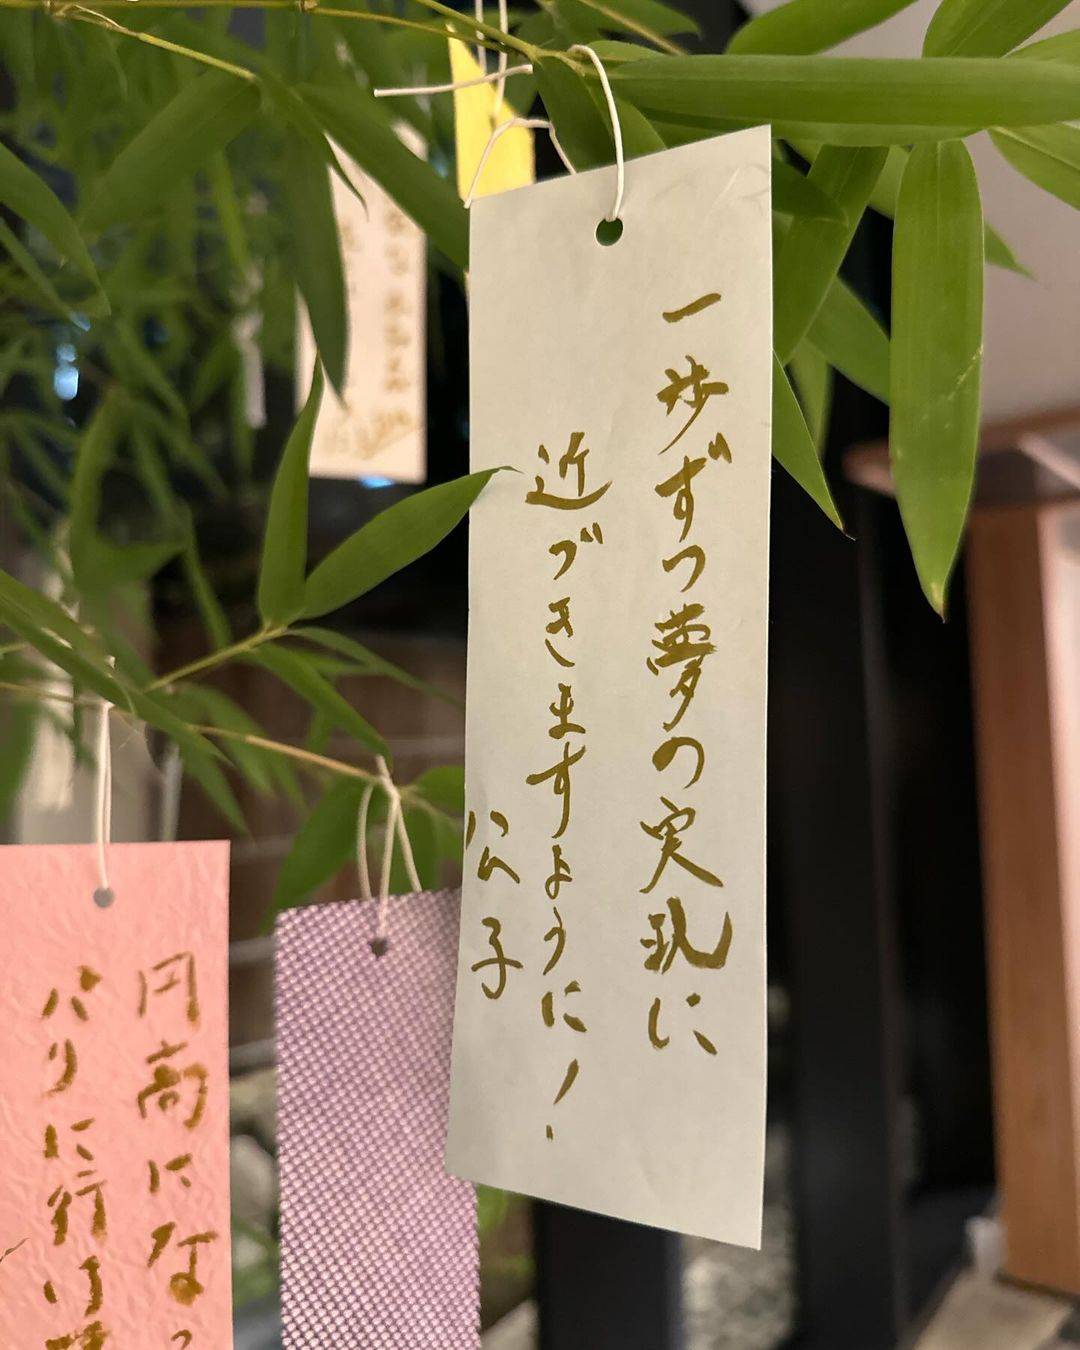 一歩ずつ夢の実現に
近づきますように!
公子
円高になっ
パリに行け